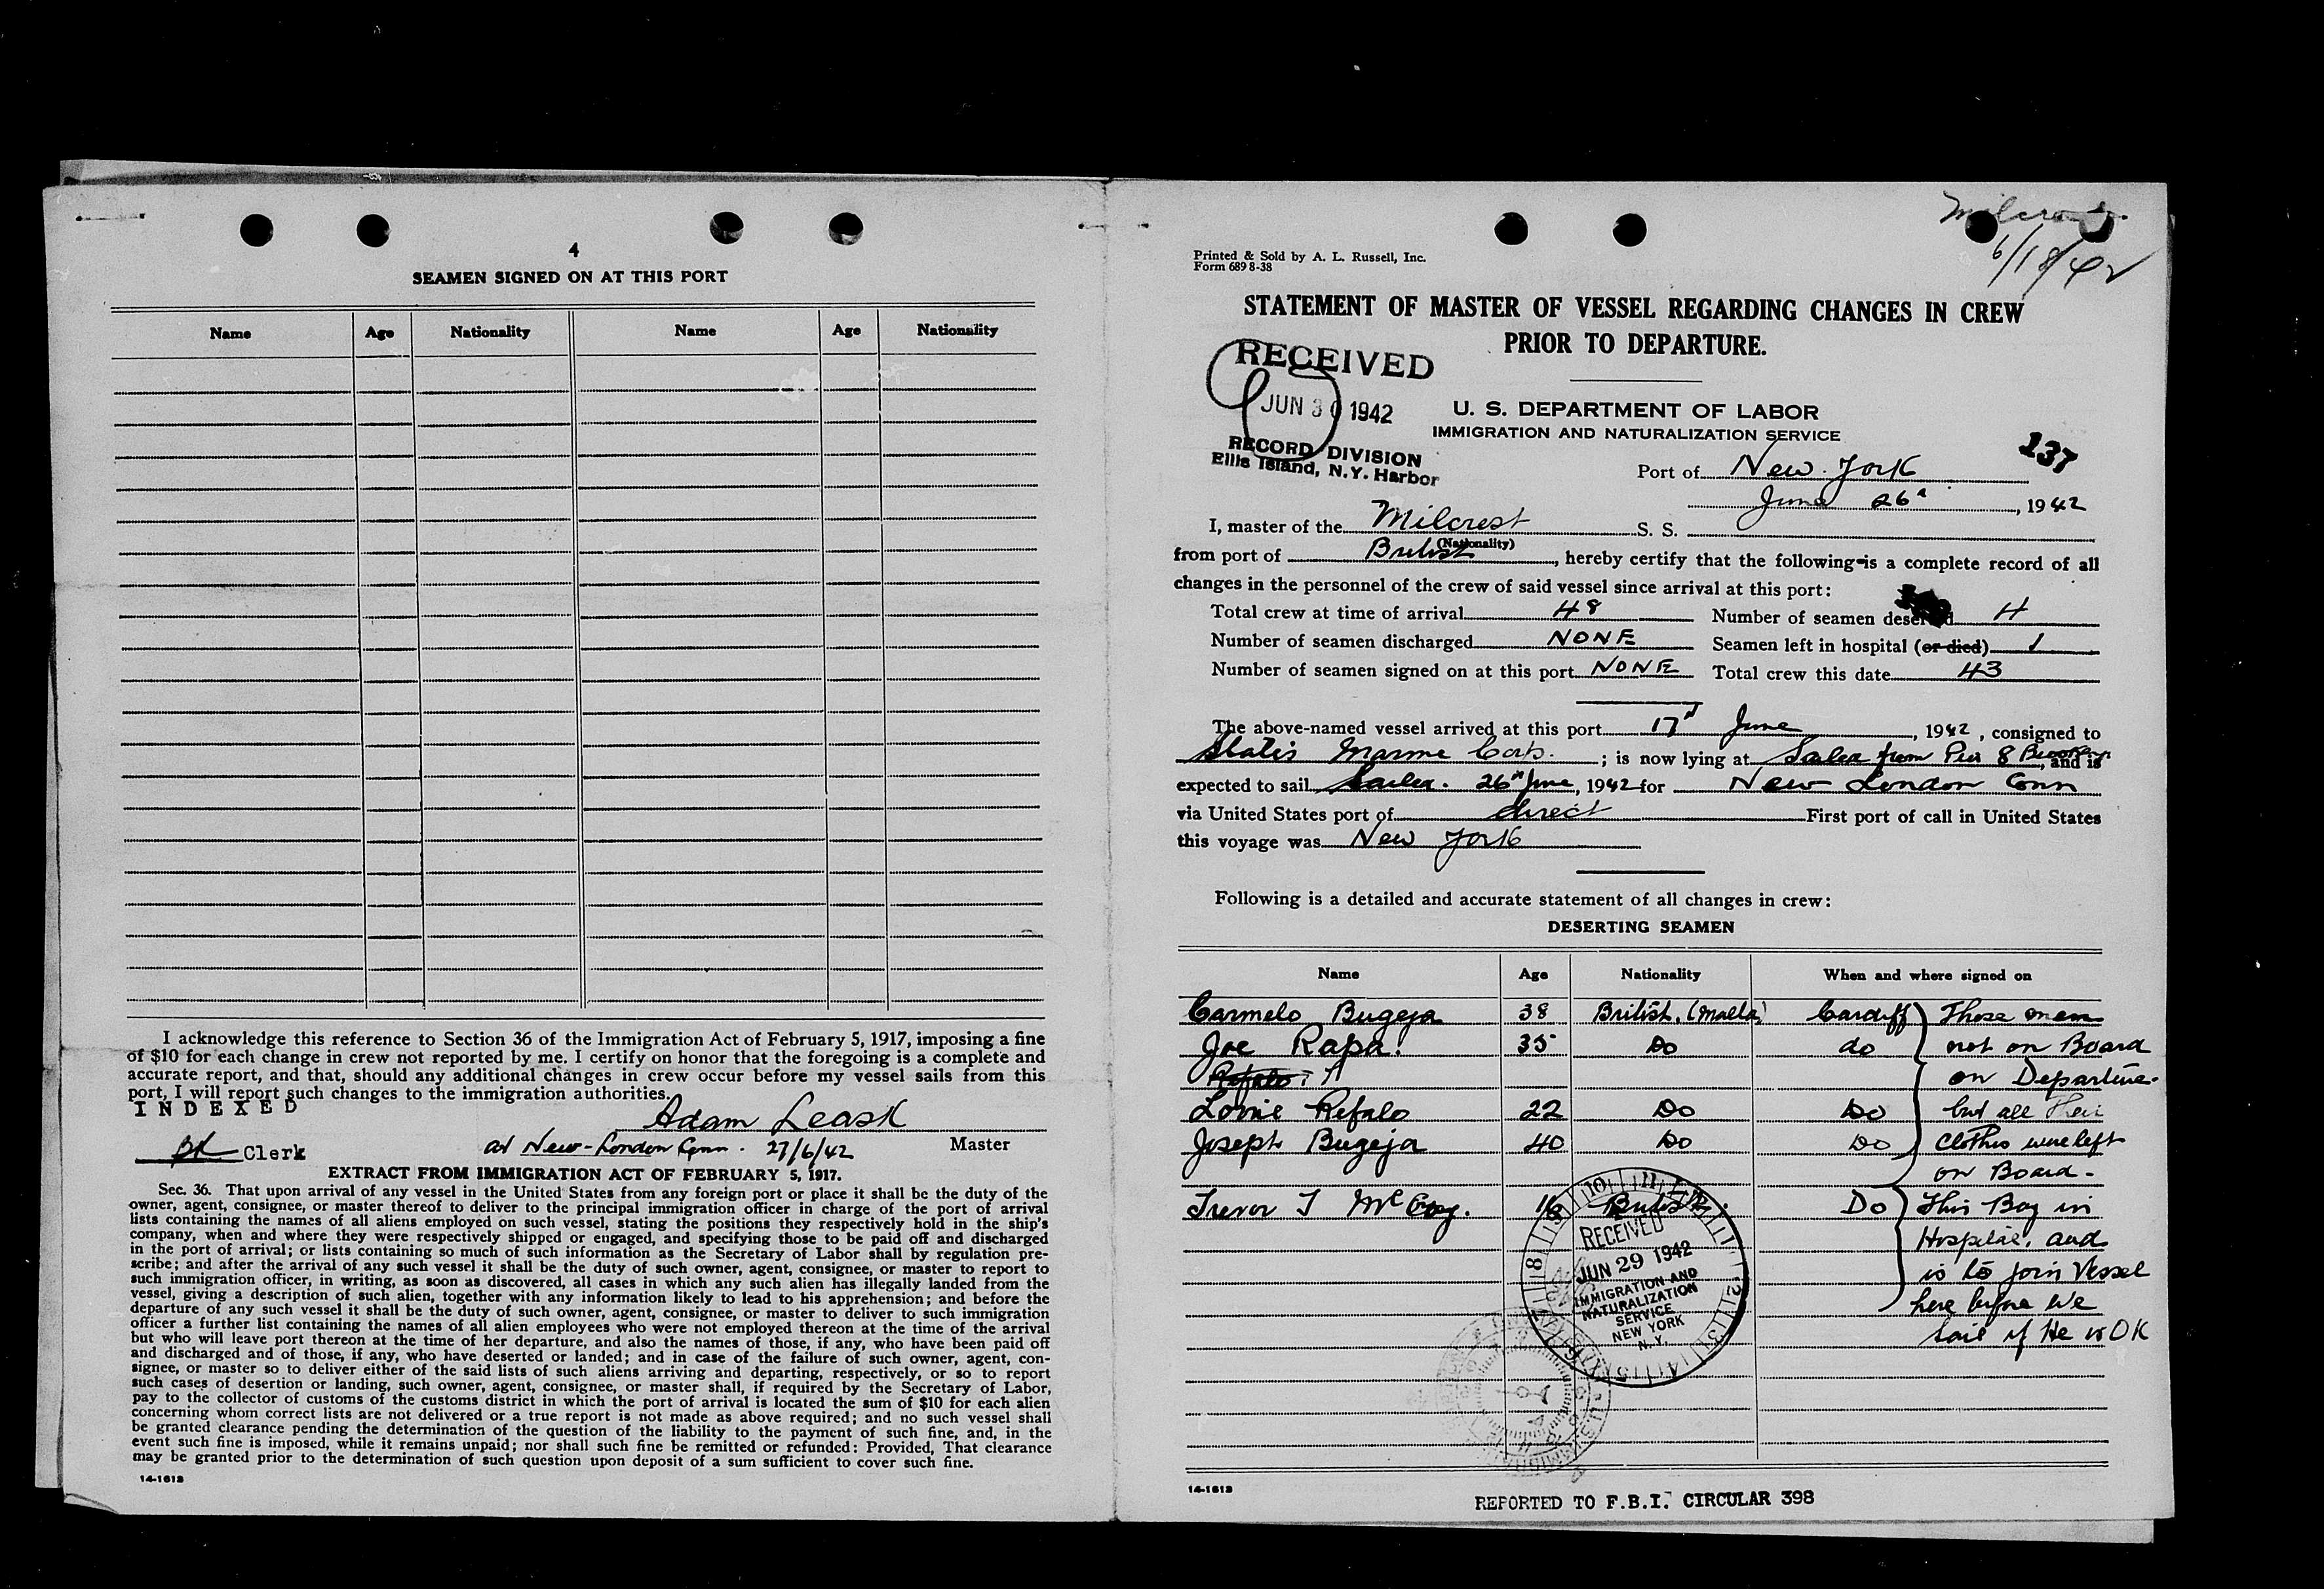 4
SEAMEN SIGNED ON AT THIS PORT
Name Age Nationality Name Age Nationality
I acknowledge this reference to Section 36 of the Immigration Act of February 5, 1917, imposing a fine
of $10 for each change in crew not reported by me. I certify on honor that the foregoing is a complete and
accurate report, and that, should any additional changes in crew occur before my vessel sails from this
port, I will report such changes to the immigration authorities.
INDEXED
Adam Leask
Clerk at New-London Conn. 27/6/42 Master
EXTRACT FROM IMMIGRATION ACT OF FEBRUARY 5, 1917.
Sec. 36. That upon arrival of any vessel in the United States from any foreign port or place it shall be the duty of the
owner, agent, consignee, or master thereof to deliver to the principal immigration officer in charge of the port of arrival
lists containing the names of all aliens employed on such vessel, stating the positions they respectively hold in the ship's
company, when and where they were respectively shipped or engaged, and specifying those to be paid off and discharged
in the port of arrival; or lists containing so much of such information as the Secretary of Labor shall by regulation pre-
scribe; and after the arrival of any such vessel it shall be the duty of such owner, agent, consignee, or master to report to
such immigration officer, in writing, as soon as discovered, all cases in which any such alien has illegally landed from the
vessel, giving a description of such alien, together with any information likely to lead to his apprehension; and before the
departure of any such vessel it shall be the duty of such owner, agent, consignee, or master to deliver to such immigration
officer a further list containing the names of all alien employees who were not employed thereon at the time of the arrival
but who will leave port thereon at the time of her departure, and also the names of those, if any, who have been paid off
and discharged and of those, if any, who have deserted or landed; and in case of the failure of such owner, agent, con-
signee, or master so to deliver either of the said lists of such aliens arriving and departing, respectively, or so to report
such cases of desertion or landing, such owner, agent, consignee, or master shall, if required by the Secretary of Labor,
pay to the collector of customs of the customs district in which the port of arrival is located the sum of $10 for each alien
concerning whom correct lists are not delivered or a true report is not made as above required; and no such vessel shall
be granted clearance pending the determination of the question of the liability to the payment of such fine, and, in the
event such fine is imposed, while it remains unpaid; nor shall such fine be remitted or refunded: Provided, That clearance
may be granted prior to the determination of such question upon deposit of a sum sufficient to cover such fine.
14-1613
6/18/42
Printed & Sold by A. L. Russell, Inc.
Form 689 8-38
STATEMENT OF MASTER OF VESSEL REGARDING CHANGES IN CREW
PRIOR TO DEPARTURE.
RECEIVED
JUN 30 1942
RECORD DIVISION
Ellis Island, N.Y. Harbor
U. S. DEPARTMENT OF LABOR
IMMIGRATION AND NATURALIZATION SERVICE
137
Port of New York
June 26th, 1942
I, master of the Milcrest S. S.
(Nationality)
from port of British, hereby certify that the following is a complete record of all
changes in the personnel of the crew of said vessel since arrival at this port:
Total crew at time of arrival 48 Number of seamen deserted 4
Number of seamen discharged NONE Seamen left in hospital (or died) 1
Number of seamen signed on at this port NONE Total crew this date 43
The above-named vessel arrived at this port 17th June, 1942, consigned to
States Marine Corp. ; is now lying at Sailed from Pier 8 Brooklyn, and is
expected to sail Sailed. 26th June, 1942 for New London Conn
via United States port of direct First port of call in United States
this voyage was New York
Following is a detailed and accurate statement of all changes in crew:
DESERTING SEAMEN
Name Age Nationality When and where signed on
Carmelo Bugeja 38 British. (Malta) Cardiff These men
Joe Rapa. 35 Do do not on Board
Refalo on Departure
Lorrie Refalo 22 Do Do but all their
Joseph Bugeja 40 Do Do clothes were left
on Board-
Trevor J McCoy. 16 British. Do This Boy in
Hospital, and
is to join Vessel
here before we
sail if He is OK
RECEIVED
JUN 29 1942
IMMIGRATION AND
NATURALIZATION
SERVICE
NEW YORK
N. Y.
14-1613
REPORTED TO F.B.I. CIRCULAR 398